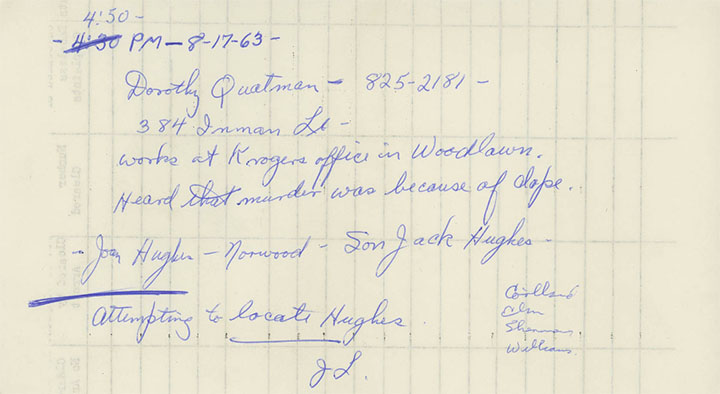 4:50 -
- 4:30 PM - 8-17-63 -
Dorothy Quatman - 825-2181 -
384 Inman
works at Krogers office in Woodlawn.
Heard that murder was because of dope.
- Joan Hughes - Norwood - Son Jack Hughes -
Attempting to locate Hughes
Elm
Sherman
Williams
J L.